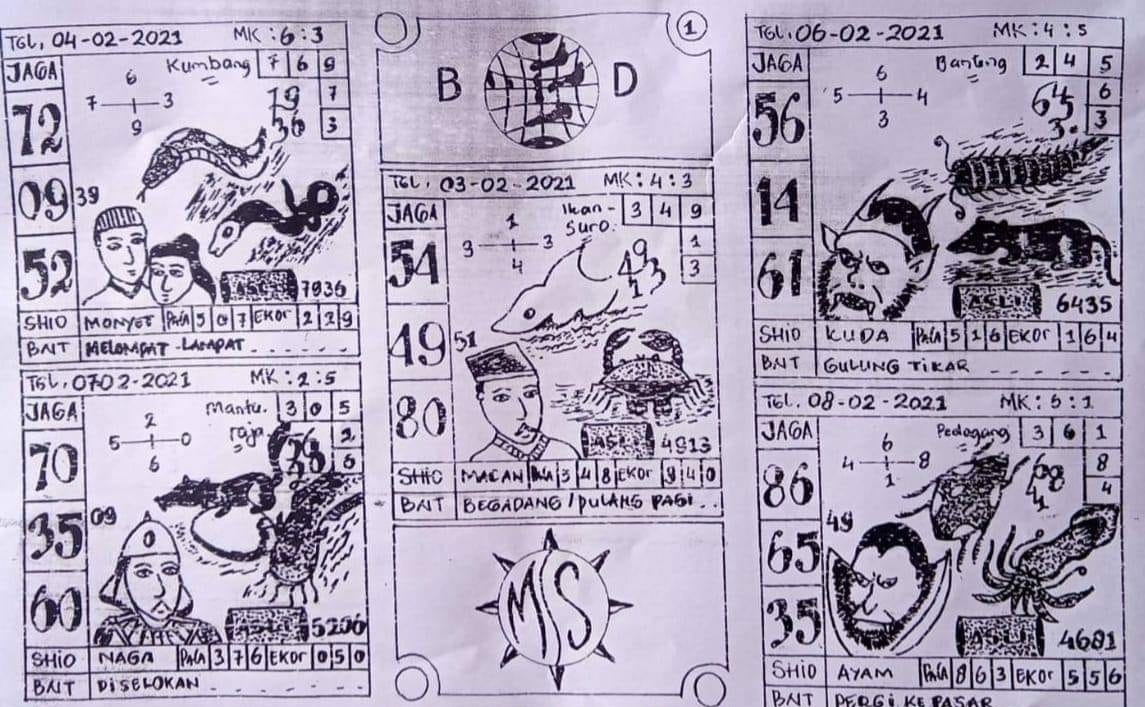 TGL, 04-02-2021 MK : 6 : 3
JAGA
Kumbang 7 6 9
7
3
6
7 3
9
79
36
72
09
39
52
ASLI 7936
SHIO MONYET PALA 5 0 7 EKOR 2 2 9
BAIT MELOMPAT - LAMPAT
TGL, 0702-2021 MK : 2 : 5
JAGA
Mantu. raja 3 0 5
2
6
2
5 0
6
70
35
09
60
ASLI 5206
SHIO NAGA PALA 3 7 6 EKOR 0 5 0
BAIT DISELOKAN
1
B D
TGL, 03-02-2021 MK : 4 : 3
JAGA
Ikan - Suro. 3 4 9
1
3
1
9 3
4
54
49
51
80
ASLI 4913
SHIO MACAN PALA 3 4 8 EKOR 9 4 0
BAIT BEGADANG / PULANG PAGI . .
MS
TGL, 06-02-2021 MK : 4 : 5
JAGA
Banteng 2 4 5
6
3
6
5 4
3
56
14
61
ASLI 6435
SHIO KUDA PALA 5 1 6 EKOR 1 6 4
BAIT GULUNG TIKAR
TGL. 08-02-2021 MK : 6 : 1
JAGA
Pedagang 3 6 1
8
4
6
4 8
1
86
65
49
35
ASLI 4681
SHIO AYAM PALA 8 6 3 EKOR 5 5 6
BAIT PERGI KE PASAR